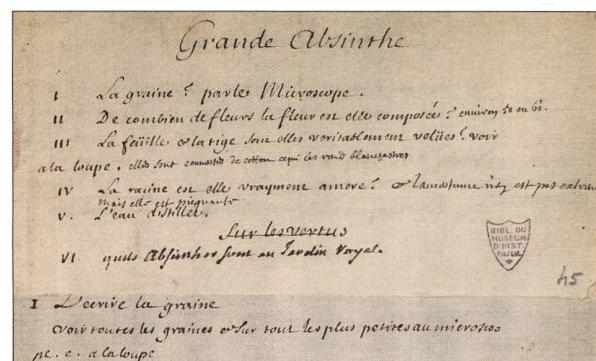 Grande Absinthe
I La graine? par le Microscope.
II De combien de fleurs la fleur est elle composée? environ 50 ou 60.
III La feüille & la tige sont elles veritablement velües? voir
a la loupe. elles sont couvertes de cotton ce qui les rend blancheatres
IV La racine est elle vrayment amere? & l'amertume n'ey est pas extreme
mais elle est piequante
V. L'eau distillée.
Sur les vertus
VI quels Absinthes sont au Jardin Royal.
BIBL. DU
MUSÉUM
D'HIST.
NATUR.
45
I Decrire la graine
voir toutes les graines & sur tout les plus petites au microscop
pe. e. a la loupe